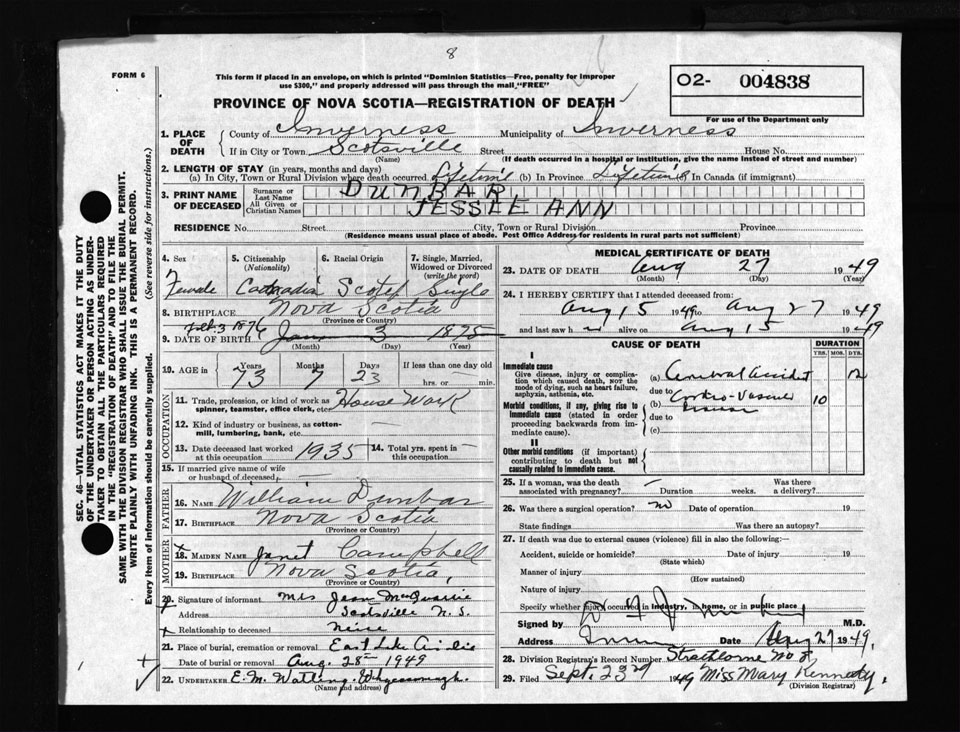 8
FORM 6
This form if placed in an envelope, on which is printed "Dominion Statistics—Free, penalty for improper
use $300," and properly addressed will pass through the mail "FREE"
O2- 004838
For use of the Department only
PROVINCE OF NOVA SCOTIA—REGISTRATION OF DEATH
1. PLACE OF DEATH
County of Inverness Municipality of Inverness
If in City or Town Scotsville Street House No.
(Name) (If death occurred in a hospital or institution, give the name instead of street and number)
2. LENGTH OF STAY (in years, months and days)
(a) In City, Town or Rural Division where death occurred Lifetime (b) In Province Lifetime in Canada (if immigrant)
3. PRINT NAME OF DECEASED
Surname or Last Name DUNBAR,
All Given or Christian Names JESSIE ANN
RESIDENCE No. Street City, Town or Rural Division Province
(Residence means usual place of abode. Post Office Address for residents in rural parts not sufficient)
4. Sex 5. Citizenship (Nationality) 6. Racial Origin 7. Single, Married, Widowed or Divorced (write the word)
Female Canadian Scotch Single
8. BIRTHPLACE Nova Scotia
(Province or Country)
Feb. 3 1876
9. DATE OF BIRTH Jan 3 1875
(Month) (Day) (Year)
10. AGE in Years Months Days If less than one day old
73 7 23 hrs. or min.
11. Trade, profession, or kind of work as spinner, teamster, office clerk, etc. House Work
12. Kind of industry or business, as cotton-mill, lumbering, bank, etc.
13. Date deceased last worked at this occupation 1935 14. Total yrs. spent in this occupation
15. If married give name of wife or husband of deceased
FATHER
16. NAME William Dunbar
17. BIRTHPLACE Nova Scotia
(Province or Country)
MOTHER
18. MAIDEN NAME Janet Campbell
19. BIRTHPLACE Nova Scotia,
(Province or Country)
20. Signature of informant Mrs Jean MacQuarrie
Address Scotsville N.S.
Relationship to deceased Neice
21. Place of burial, cremation or removal East Lake Ainslie
Date of burial or removal Aug. 28th 1949
22. UNDERTAKER E.M. Watling, Whycocomagh.
(Name and address)
MEDICAL CERTIFICATE OF DEATH
23. DATE OF DEATH Aug 27 1949
(Month) (Day)
24. I HEREBY CERTIFY that I attended deceased from:
Aug 15 1949 to Aug 27 1949
and last saw h alive on Aug 15 1949
CAUSE OF DEATH DURATION
YRS. MOS. DYS.
I
Immediate cause
Give disease, injury or complication which caused death, NOT the mode of dying, such as heart failure, asphyxia, asthenia, etc.
(a) Cerebral accident 12
due to
Morbid conditions, if any, giving rise to immediate cause (stated in order proceeding backwards from immediate cause).
(b) Cardio-Vascular disease 10
due to
(c)
II
Other morbid conditions (if important) contributing to death but not causally related to immediate cause.
25. If a woman, was the death associated with pregnancy? Duration weeks. Was there a delivery?
26. Was there a surgical operation? no Date of operation 19
State findings Was there an autopsy?
27. If death was due to external causes (violence) fill in also the following:—
Accident, suicide or homicide? Date of injury 19
(State which)
Manner of injury
(How sustained)
Nature of injury
Specify whether injury occurred in industry, in home, or in public place
Signed by M.D.
Address Date Aug 27 1949.
28. Division Registrar's Record Number Strathlorne No 8
29. Filed Sept. 23rd 1949 Miss Mary Kennedy.
(Division Registrar)
SEC. 46—VITAL STATISTICS ACT MAKES IT THE DUTY
OF THE UNDERTAKER OR PERSON ACTING AS UNDER-
TAKER TO OBTAIN ALL THE PARTICULARS REQUIRED
IN THE "REGISTRATION OF DEATH" AND TO FILE THE
SAME WITH THE DIVISION REGISTRAR WHO SHALL ISSUE THE BURIAL PERMIT.
WRITE PLAINLY WITH UNFADING INK. THIS IS A PERMANENT RECORD.
Every item of information should be carefully supplied. (See reverse side for instructions.)